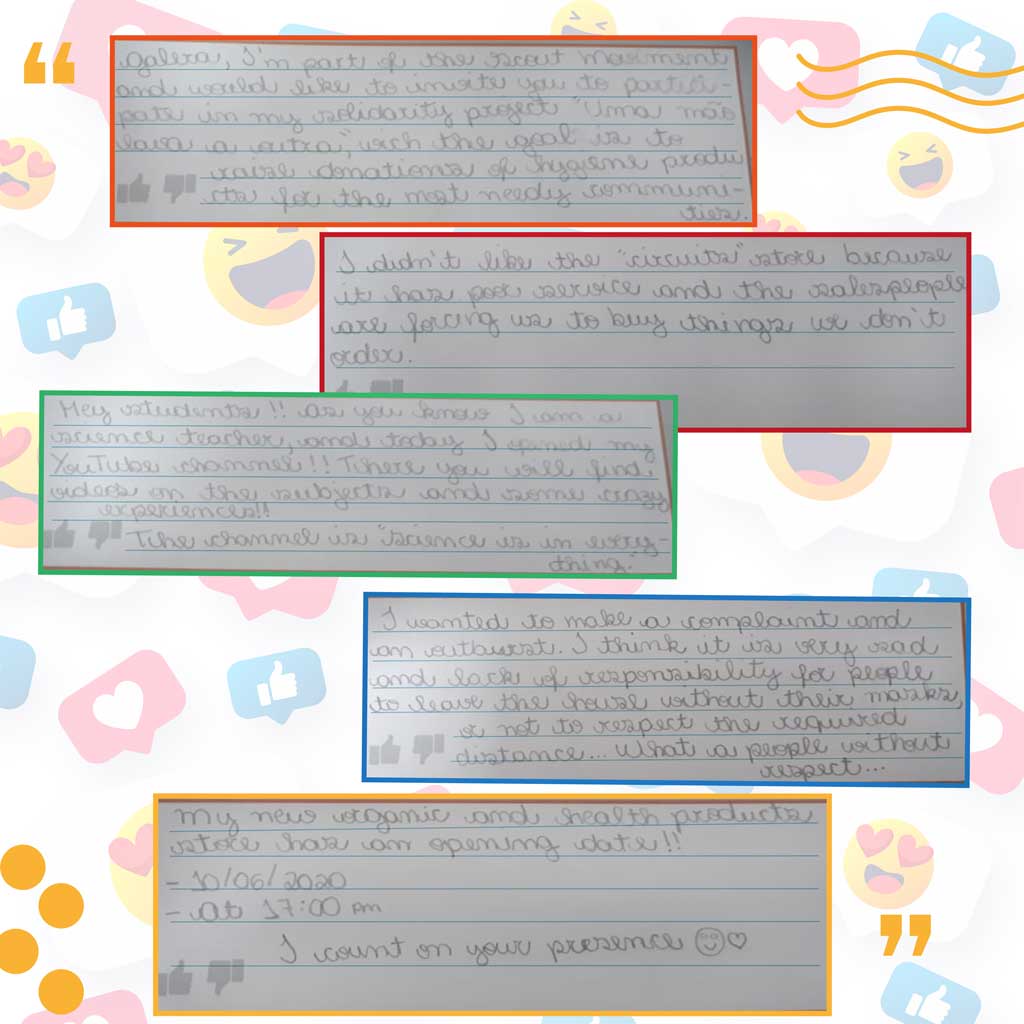 Galera, I'm part of the scout moviment
and would like to invite you to partici-
pate in my solidarity project "Uma mão
lava a outra", wich the goal is to
raise donations of hygiene produ
cts for the most needy communi-
ties.
I didn't like the "circuits" store because
it has poor service and the salespeople
are forcing us to buy things we don't
order.
Hey students!! As you know I am a
science teacher, and today I opened my
YouTube channel!! There you will find
videos on the subjects and some crazy
experiences!!
The channel is "science is in every-
thing."
I wanted to make a complaint and
an outburst. I think it is very sad
and lack of responsibility for people
to leave the house without their masks,
or not to respect the required
distance... What a people without
respect...
My new organic and health products
store has an opening date!!
- 10/06/2020
- At 17:00 pm
I count on your presence